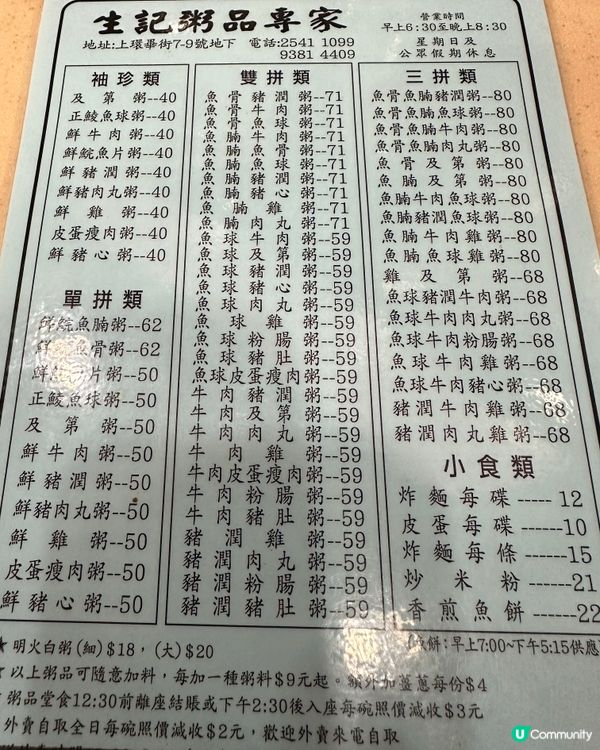 生記粥品專家
營業時間
早上6:30至晚上8:30
星期日及
公眾假期休息
地址:上環畢街7-9號地下 電話:2541 1099
9381 4409
袖珍類
及第粥--40
正鯪魚球粥--40
鮮牛肉粥--40
鮮鯇魚片粥--40
鮮豬潤粥--40
鮮豬肉丸粥--40
鮮雞粥--40
皮蛋瘦肉粥--40
鮮豬心粥--40
單拼類
鮮鯇魚腩粥--62
鮮魚骨粥--62
鮮片粥--50
正鯪魚球粥--50
及第粥--50
鮮牛肉粥--50
鮮豬潤粥--50
鮮豬肉丸粥--50
鮮雞粥--50
皮蛋瘦肉粥--50
鮮豬心粥--50
雙拼類
魚骨豬潤粥--71
魚骨牛肉粥--71
魚骨魚球粥--71
魚腩牛肉粥--71
魚腩魚骨粥--71
魚腩魚球粥--71
魚腩豬潤粥--71
魚腩豬心粥--71
魚腩雞粥--71
魚腩肉丸粥--71
魚球牛肉粥--59
魚球及第粥--59
魚球豬潤粥--59
魚球豬心粥--59
魚球肉丸粥--59
魚球雞粥--59
魚球粉腸粥--59
魚球豬肚粥--59
魚球皮蛋瘦肉粥--59
牛肉豬潤粥--59
牛肉及第粥--59
牛肉肉丸粥--59
牛肉雞粥--59
牛肉皮蛋瘦肉粥--59
牛肉粉腸粥--59
牛肉豬肚粥--59
豬潤雞粥--59
豬潤肉丸粥--59
豬潤粉腸粥--59
豬潤豬肚粥--59
三拼類
魚骨魚腩豬潤粥--80
魚骨魚腩魚球粥--80
魚骨魚腩牛肉粥--80
魚骨魚腩肉丸粥--80
魚骨及第粥--80
魚腩及第粥--80
魚腩牛肉魚球粥--80
魚腩豬潤魚球粥--80
魚腩牛肉雞粥--80
雞及第粥--68
魚球豬潤牛肉粥--68
魚球牛肉肉丸粥--68
魚球牛肉粉腸粥--68
魚球牛肉雞粥--68
魚球牛肉豬心粥--68
豬潤牛肉雞粥--68
豬潤牛肉肉丸粥--68
小食類
炸麵每碟-----12
皮蛋每碟-----10
炸麵每條-----15
炒米粉-----21
香煎魚餅-----22
餅:早上7:00~下午5:15供應
★明火白粥(細)$18,(大)$20
★以上粥品可隨意加料,每加一種粥料$9元起。額外加薑蔥每份$4
粥品堂食12:30前離座結賬或下午2:30後入座每碗照價減收$3元
外賣自取全日每碗照價減收$2元,歡迎外賣來電自取
U Community